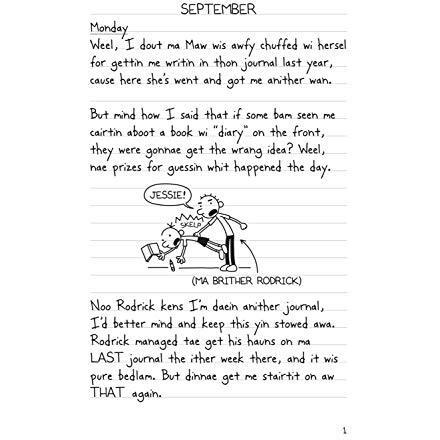 SEPTEMBER
Monday
Weel, I dout ma Maw wis awfy chuffed wi hersel
for gettin me writin in thon journal last year,
cause here she's went and got me anither wan.
But mind how I said that if some bam seen me
cairtin aboot a book wi "diary" on the front,
they were gonnae get the wrang idea? Weel,
nae prizes for guessin whit happened the day.
JESSIE!
SKELP
(MA BRITHER RODRICK)
Noo Rodrick kens I'm daein anither journal,
I'd better mind and keep this yin stowed awa.
Rodrick managed tae get his hauns on ma
LAST journal the ither week there, and it wis
pure bedlam. But dinnae get me stairtit on aw
THAT again.
1